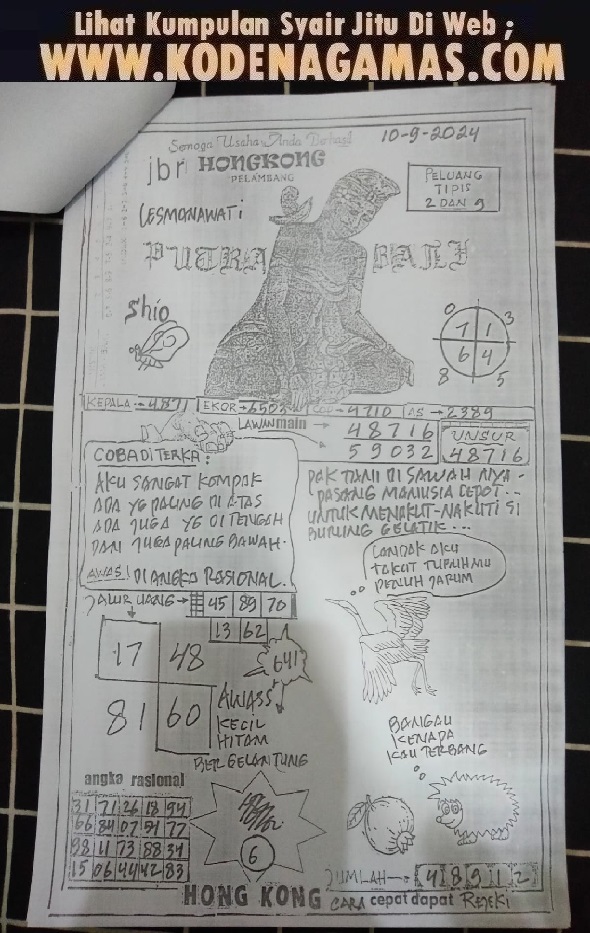 Lihat Kumpulan Syair Jitu Di Web ;
WWW.KODENAGAMAS.COM
Semoga Usaha Anda Berhasil
10-9-2024
jbr HONGKONG
PELAMBANG
PELUANG
TIPIS
2 DAN 9
LESMONAWATI
PUTRA BALI
Shio
0
3
7 1
6 4
8
5
KEPALA → 4871
EKOR → 6503
COP → 4710
AS → 2389
LAWAN main →
48716
59032
UNSUR
48716
COBA DITERKA:
AKU SANGAT KOMPAK
ADA YG PALING DI ATAS
ADA JUGA YG DI TENGAH
DAN JUGA PALING BAWAH.
AWAS! DI ANGKA RASIONAL.
PAK TANI DI SAWAH NYA -
PASANG MANUSIA DEPOT...
UNTUK MENAKUT-NAKUTI SI
BURUNG GELATIK...
LANDAK AKU
TAKUT TUBUHMU
PENUH JARUM
JALUR UANG →
45 89 70
13 62
17 48
81 60
641
AWASS
KECIL
HITAM
BERGELANTUNG
BANGAU
KENAPA
KAU TERBANG
angka rasional
31 71 26 18 94
66 84 07 54 77
98 11 73 88 34
15 06 44 42 83
6
JUMLAH → 4 8 9 1 2
HONG KONG
CARA cepat dapat REJEKI